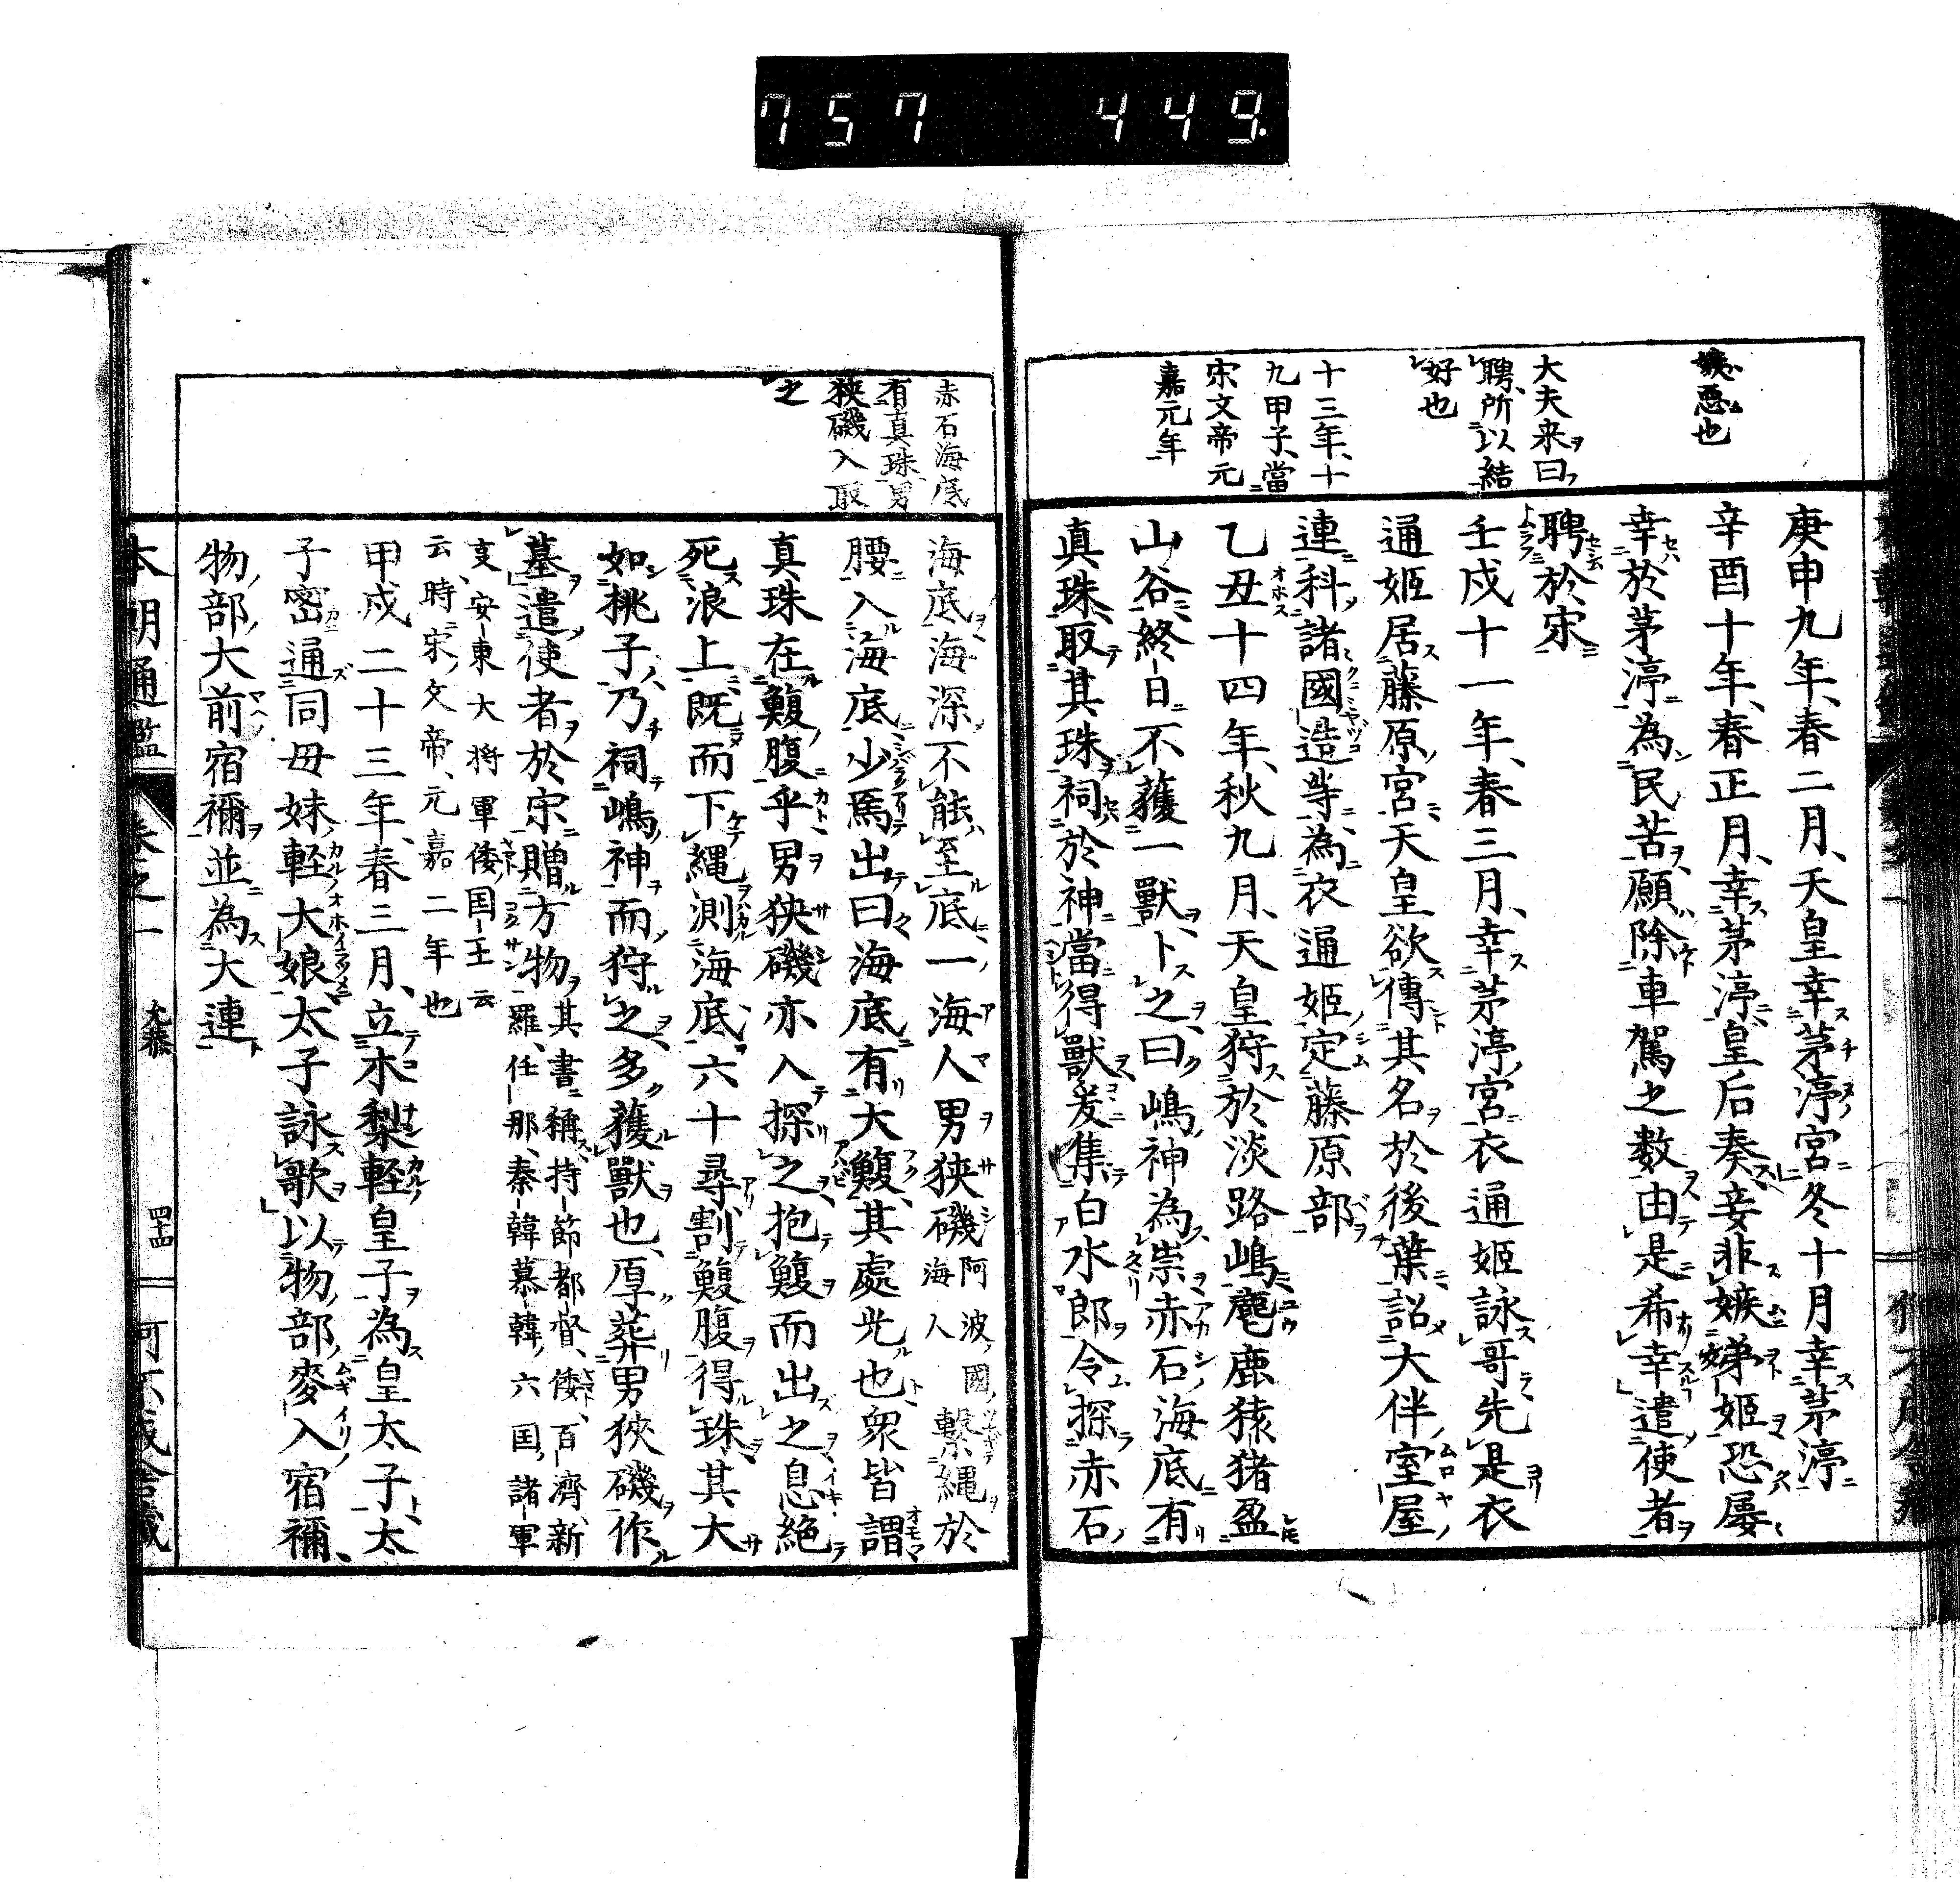 757 449.
嫉悪也
大夫来曰
聘所以結
好也
十三年、十
九甲子、當
宋文帝元
嘉元年
庚申九年、春二月、天皇幸茅渟宮冬十月幸茅渟
辛酉十年、春正月、幸茅渟、皇后奏妾非嫉弟姫恐屡
幸於茅渟為民苦、願除車駕之数由是希幸遣使者
聘於宋
壬戌十一年、春三月、幸茅渟宮衣通姫詠哥先是衣
通姫居藤原宮天皇欲傳其名於後葉詔大伴室屋
連科諸國造等為衣通姫定藤原部
乙丑十四年、秋九月、天皇狩於淡路嶋麀鹿猿猪盈
山谷終日不獲一獸、卜之曰嶋神為祟赤石海底有
真珠、取其珠祠於神當得獸爰集白水郎令探赤石
赤石海底
有真珠男
狭磯入取
之
海底海深不能至底、一海人男狭磯阿波國海人繋縄於
腰入海底少焉出曰海底有大鰒其處光也衆皆謂
真珠在鰒腹乎男狭磯亦入探之抱鰒而出之息絶
死浪上既而下縄測海底六十尋割鰒腹得珠其大
如桃子乃祠嶋神而狩之多獲獸也、厚葬男狭磯作
墓遣使者於宋贈方物其書稱持節都督、倭、百濟、新
羅、任那、秦韓慕韓、六国、諸軍
事、安東大将軍倭国王云
云時宋文帝、元嘉二年也
甲戌二十三年、春三月、立木梨軽皇子為皇太子太
子密通同毋妹軽大娘太子詠歌以物部麥入宿禰、
物部大前宿禰並為大連
本朝通鑑 巻之一 允恭 四十四